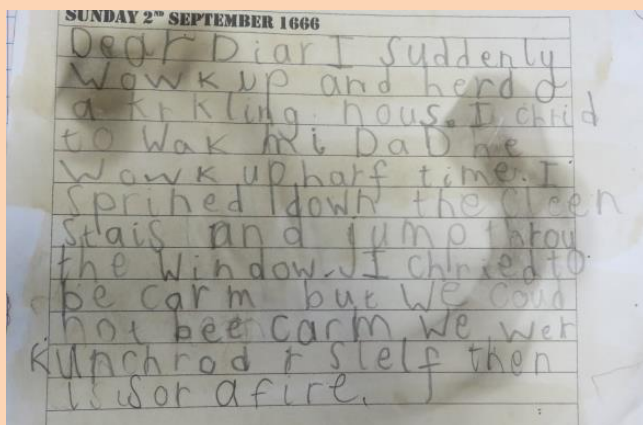 SUNDAY 2ND SEPTEMBER 1666
Dear DiarI Suddenly
Wowk up and herd a
a krkling nous. I chrid
to Wak mi DaD he
wowk up harf time. I
Sprihed down the cleen
Stais and jump throu
the Window. I chried to
be carm but We coud
not bee carm We wer
then
is sor a fire.